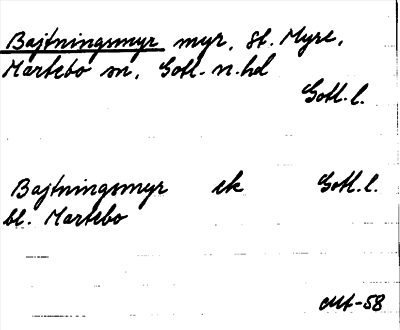 Bajtningsmyr myr, St. Myre,
Martebo sn, Gotl. n. hd
Gotl. l.
Bajtningsmyr ek Gotl. l.
bl. Martebo
Mt-58